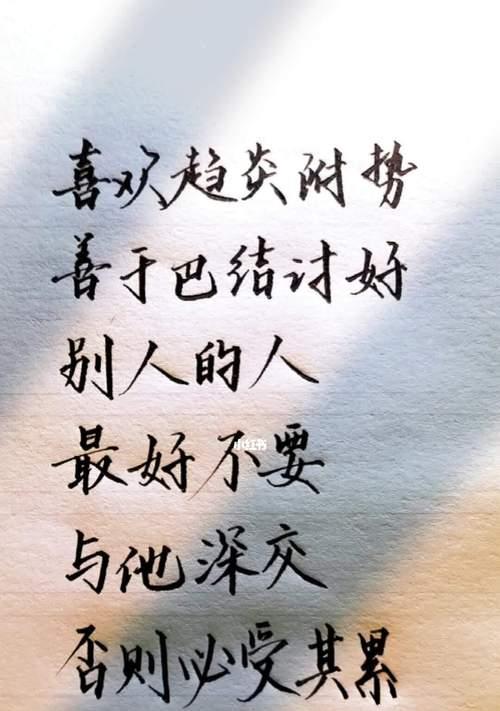 喜欢趋炎附势
善于巴结讨好
别人的人
最好不要
小红书
与他深交
否则必受其累